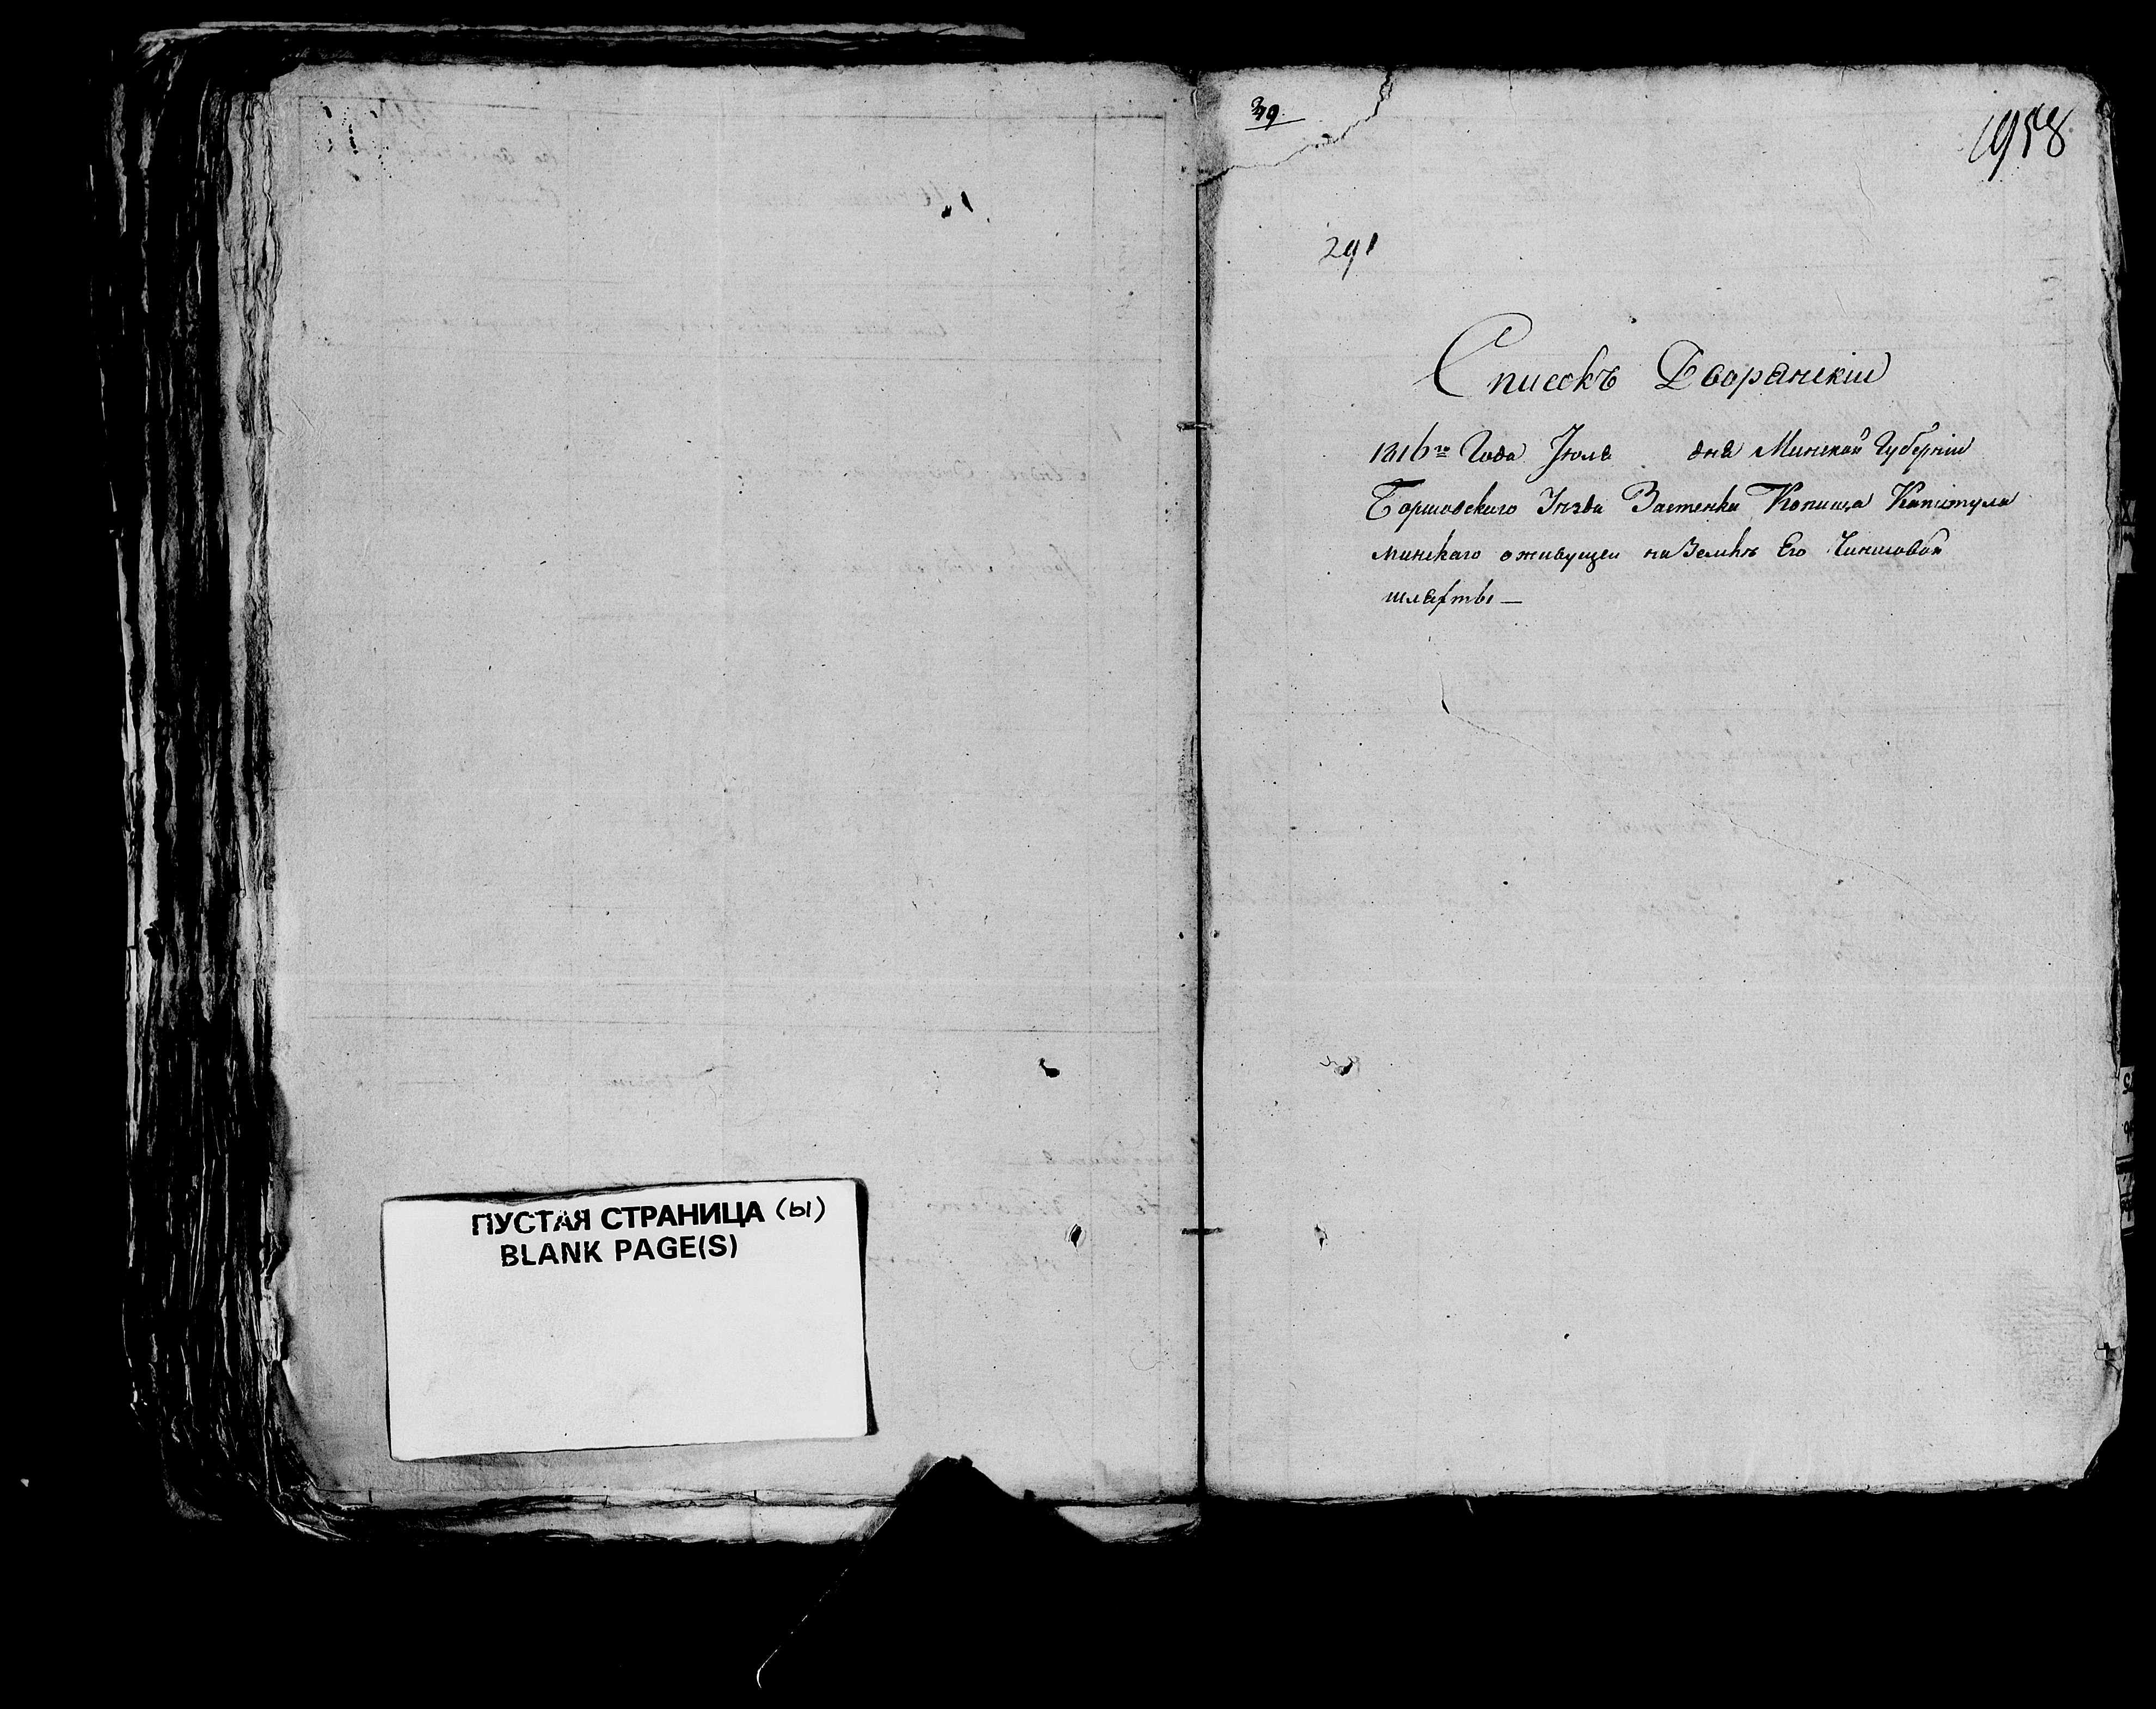 ПУСТАЯ СТРАНИЦА (ы)
BLANK PAGE(S)
1958
291
Списокъ Дворянскіи
1816го Года Іюля дня Минской Губерніи
Борисовского Уѣзда Застенка Копища Капитула
минскаго о живущеи на Земли Его Чиншовой
шляхты —